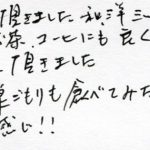 頂きました 和、洋 ミ
茶、コーヒーにも 良く
頂きました
巣ごもりも食べてみた
感じ!!